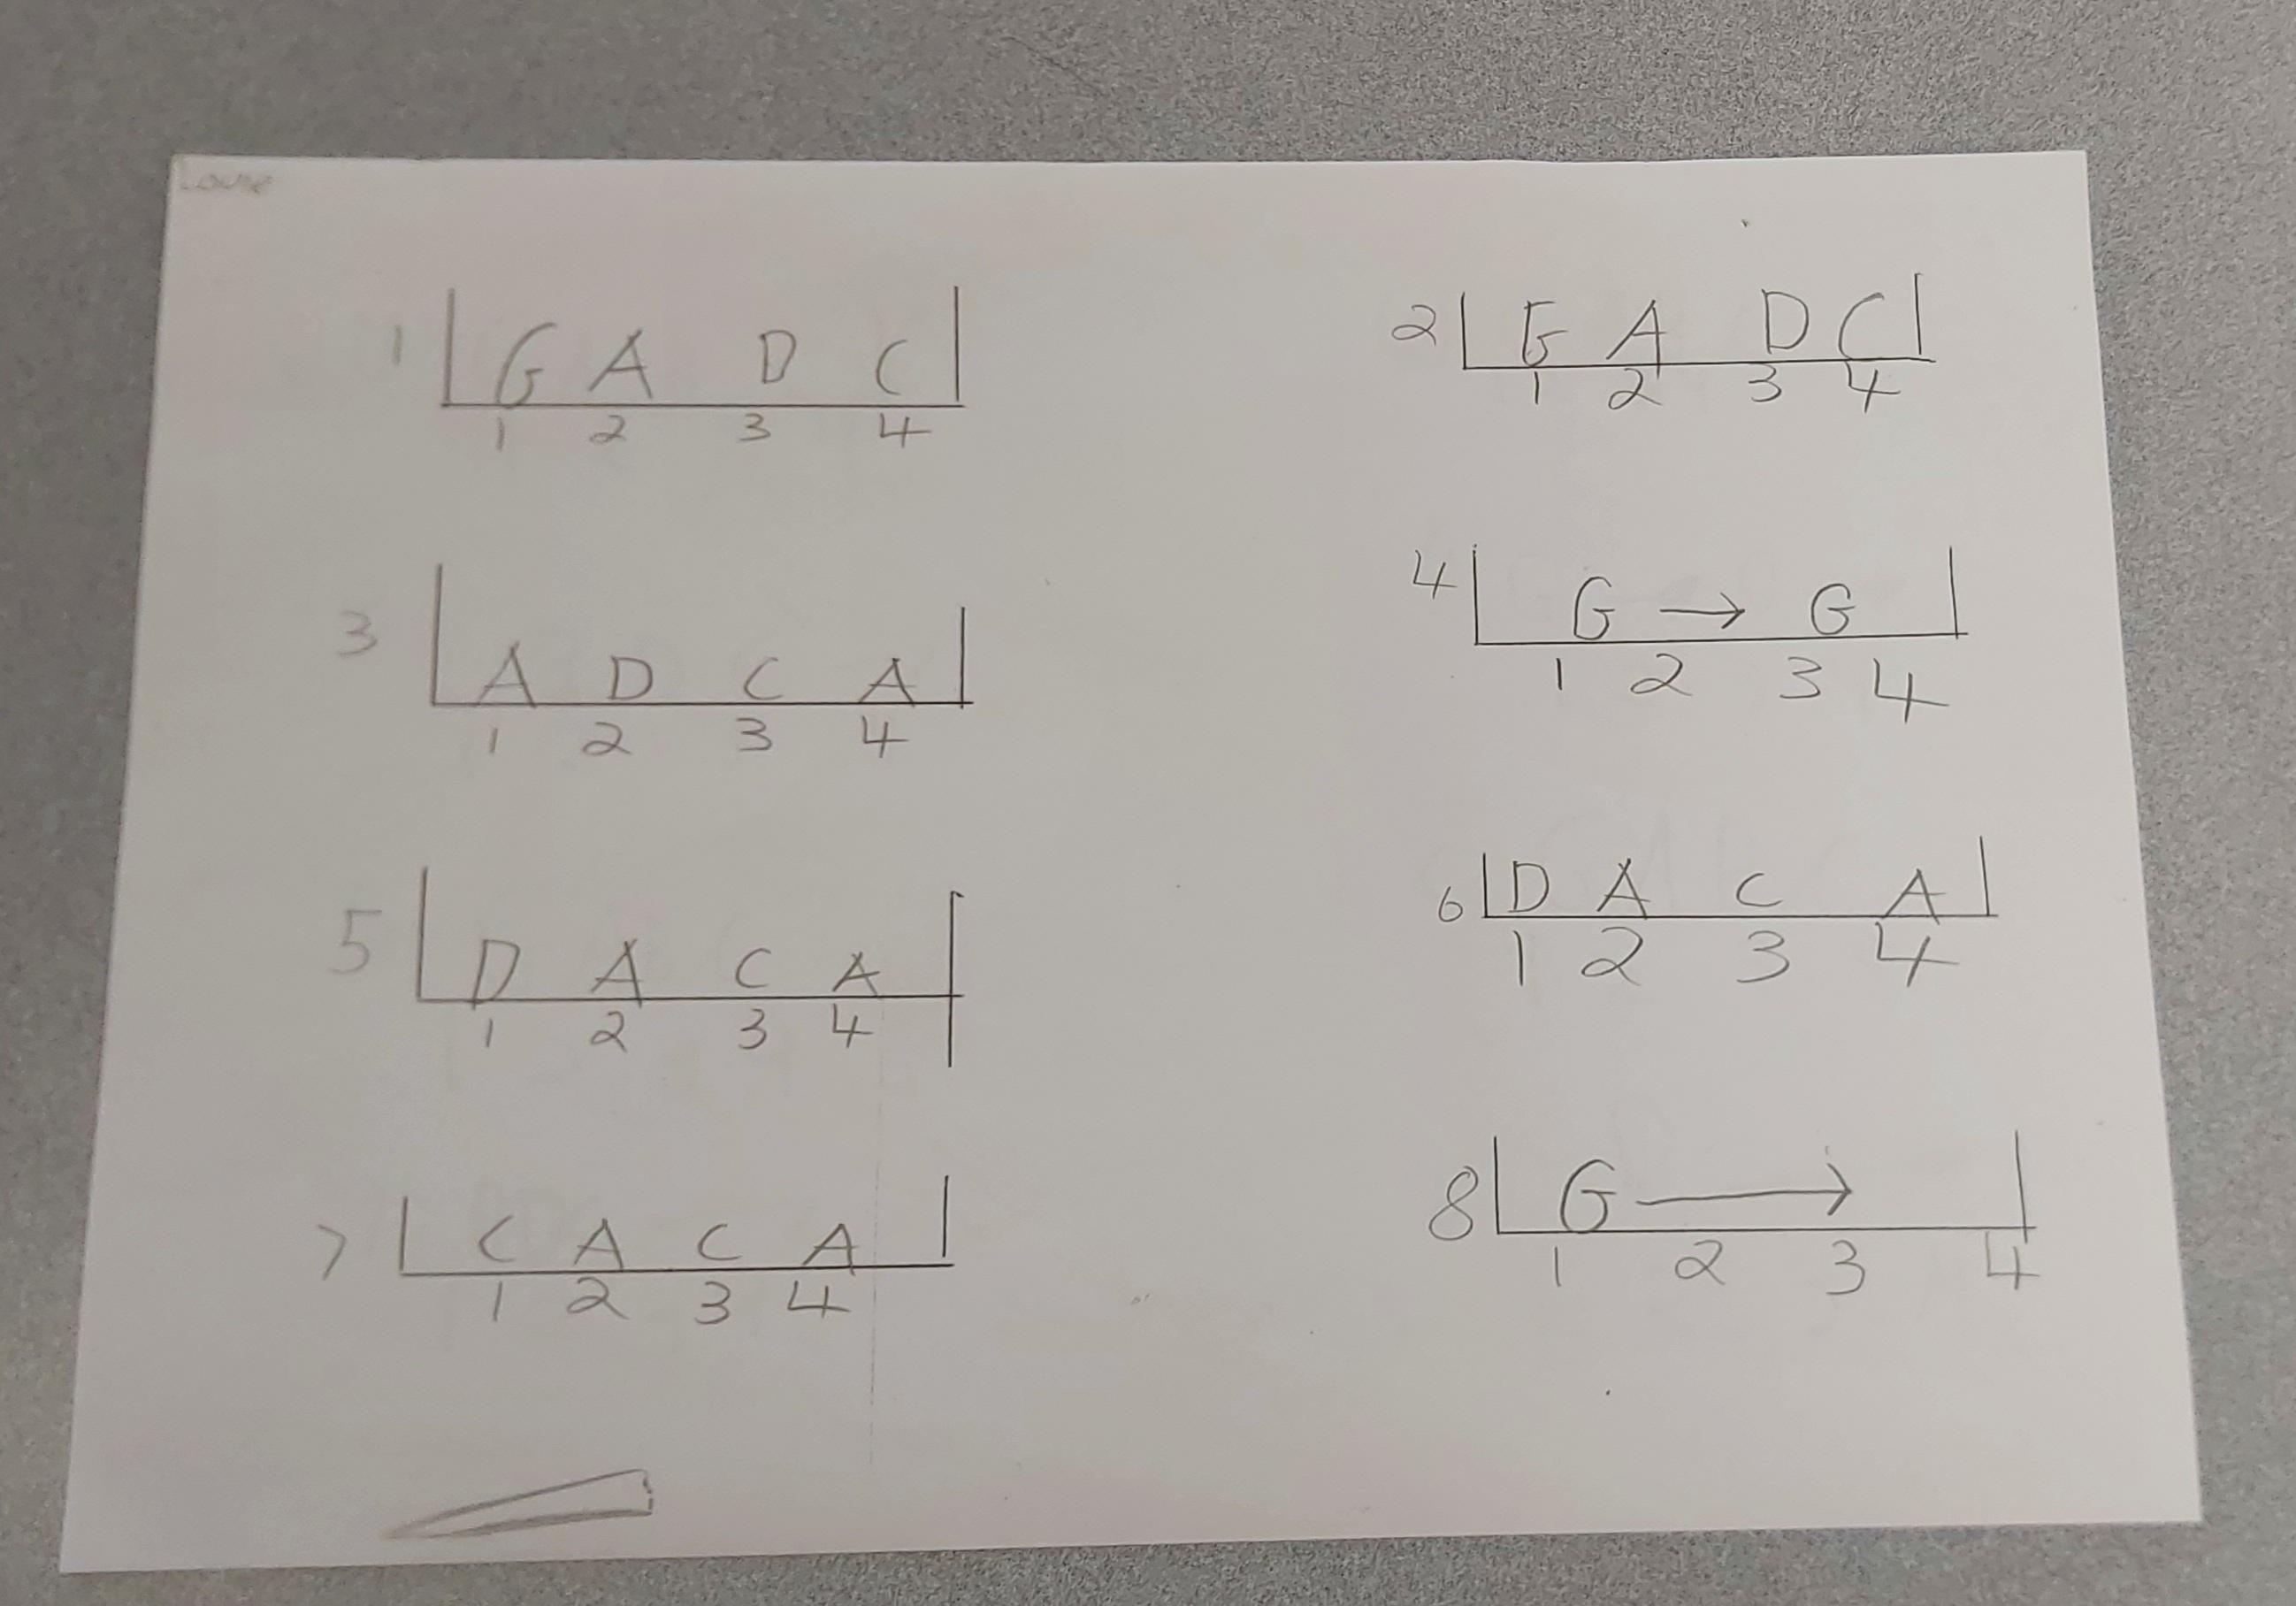 Louise
1 G A D C
1 2 3 4
2 G A D C
1 2 3 4
3 A D C A
1 2 3 4
4 G → G
1 2 3 4
5 D A C A
1 2 3 4
6 D A C A
1 2 3 4
7 C A C A
1 2 3 4
8 G →
1 2 3 4